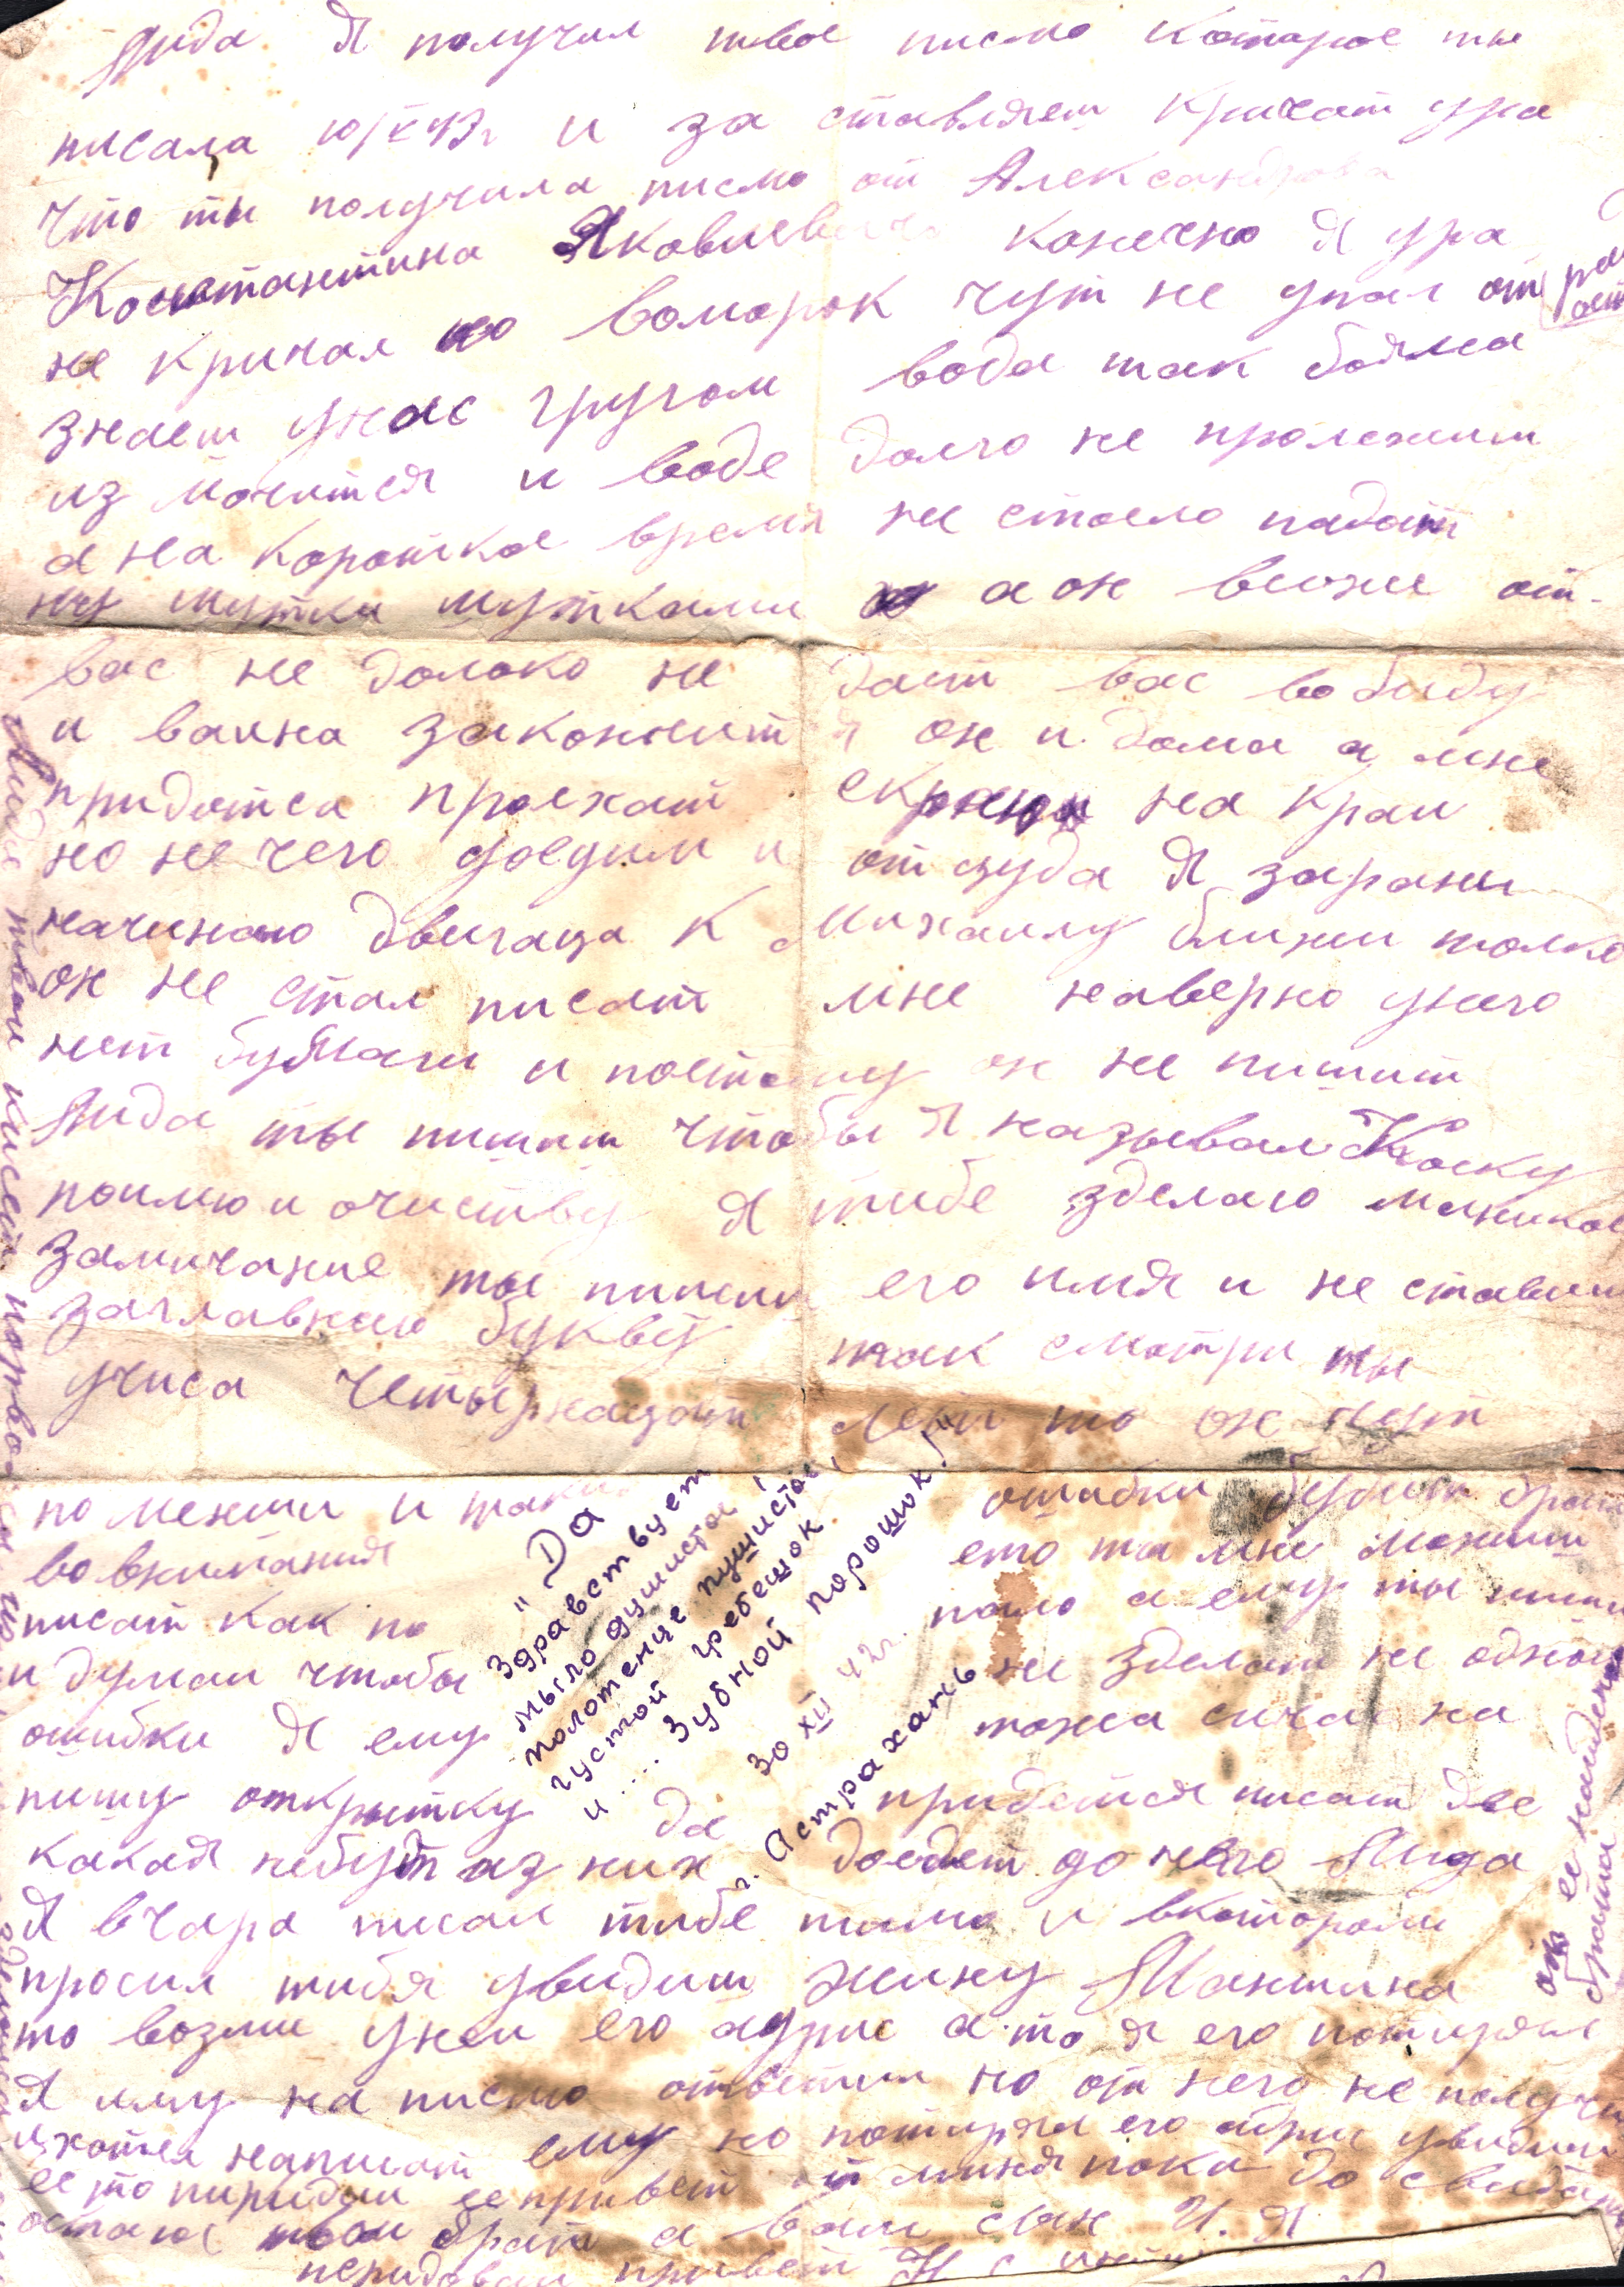 Лида Я получил твое писмо которое ты
писала 10/X 43г и за ставляеш кричат ура
что ты получила писмо от Александрова
Константина Яковлевича конечно Я ура
не кричал но воморок чут не упал от радост
знаеш унас кругом вода так боялса
из мочится и воде долго не пролежиш
а на короткое время не стоело падат
ну шутка шутками а он ближе от-
вас не долоко не даст вас вобиду
и вайна закончится он и дома а мне
придотса проехат на край
но не чего доедим и отсуда Я зарани
начинаю двигаца к Михаилу ближи толко
он не стал писат мне наверно унего
нет бумаги и поетому он не пишит
Лида ты пишиш чтобы Я называл Коску
поимю и очиству Я тибе зделаю
замичание ты пишиш его имя и не ставиш
заглавную букву так смотри ты
учиса четырнацат лет то он чут
по менши и таки ошибки будит брат
во внимания ето та мне можиш
писат как по пало а ему ты пиши
и думай чтобы не зделат не одной
ошибки Я ему тожа сичас на
пишу открытку да придется писат две
какая небуть из них доедет до него Лида
Я вчара писал тибе писмо и вкотором
просил тибя увидиш жину Мантина
то возми уней его адрис а то я его потирял
Я ему на писмо ответил но от него не получи
я хотел написат ему но потирял его адрис увидиш
ее то пиридай ее привет от миня пока до свидан
остаюс твой брат а ваш сын И. Я
перидавай привет
"Да
здравствует
мыло душистое!
полотенце пушистое,
густой гребешок
и.... зубной порошок!"
30 XII 42г.
г. Астрахань
Лида твой кисет порвося